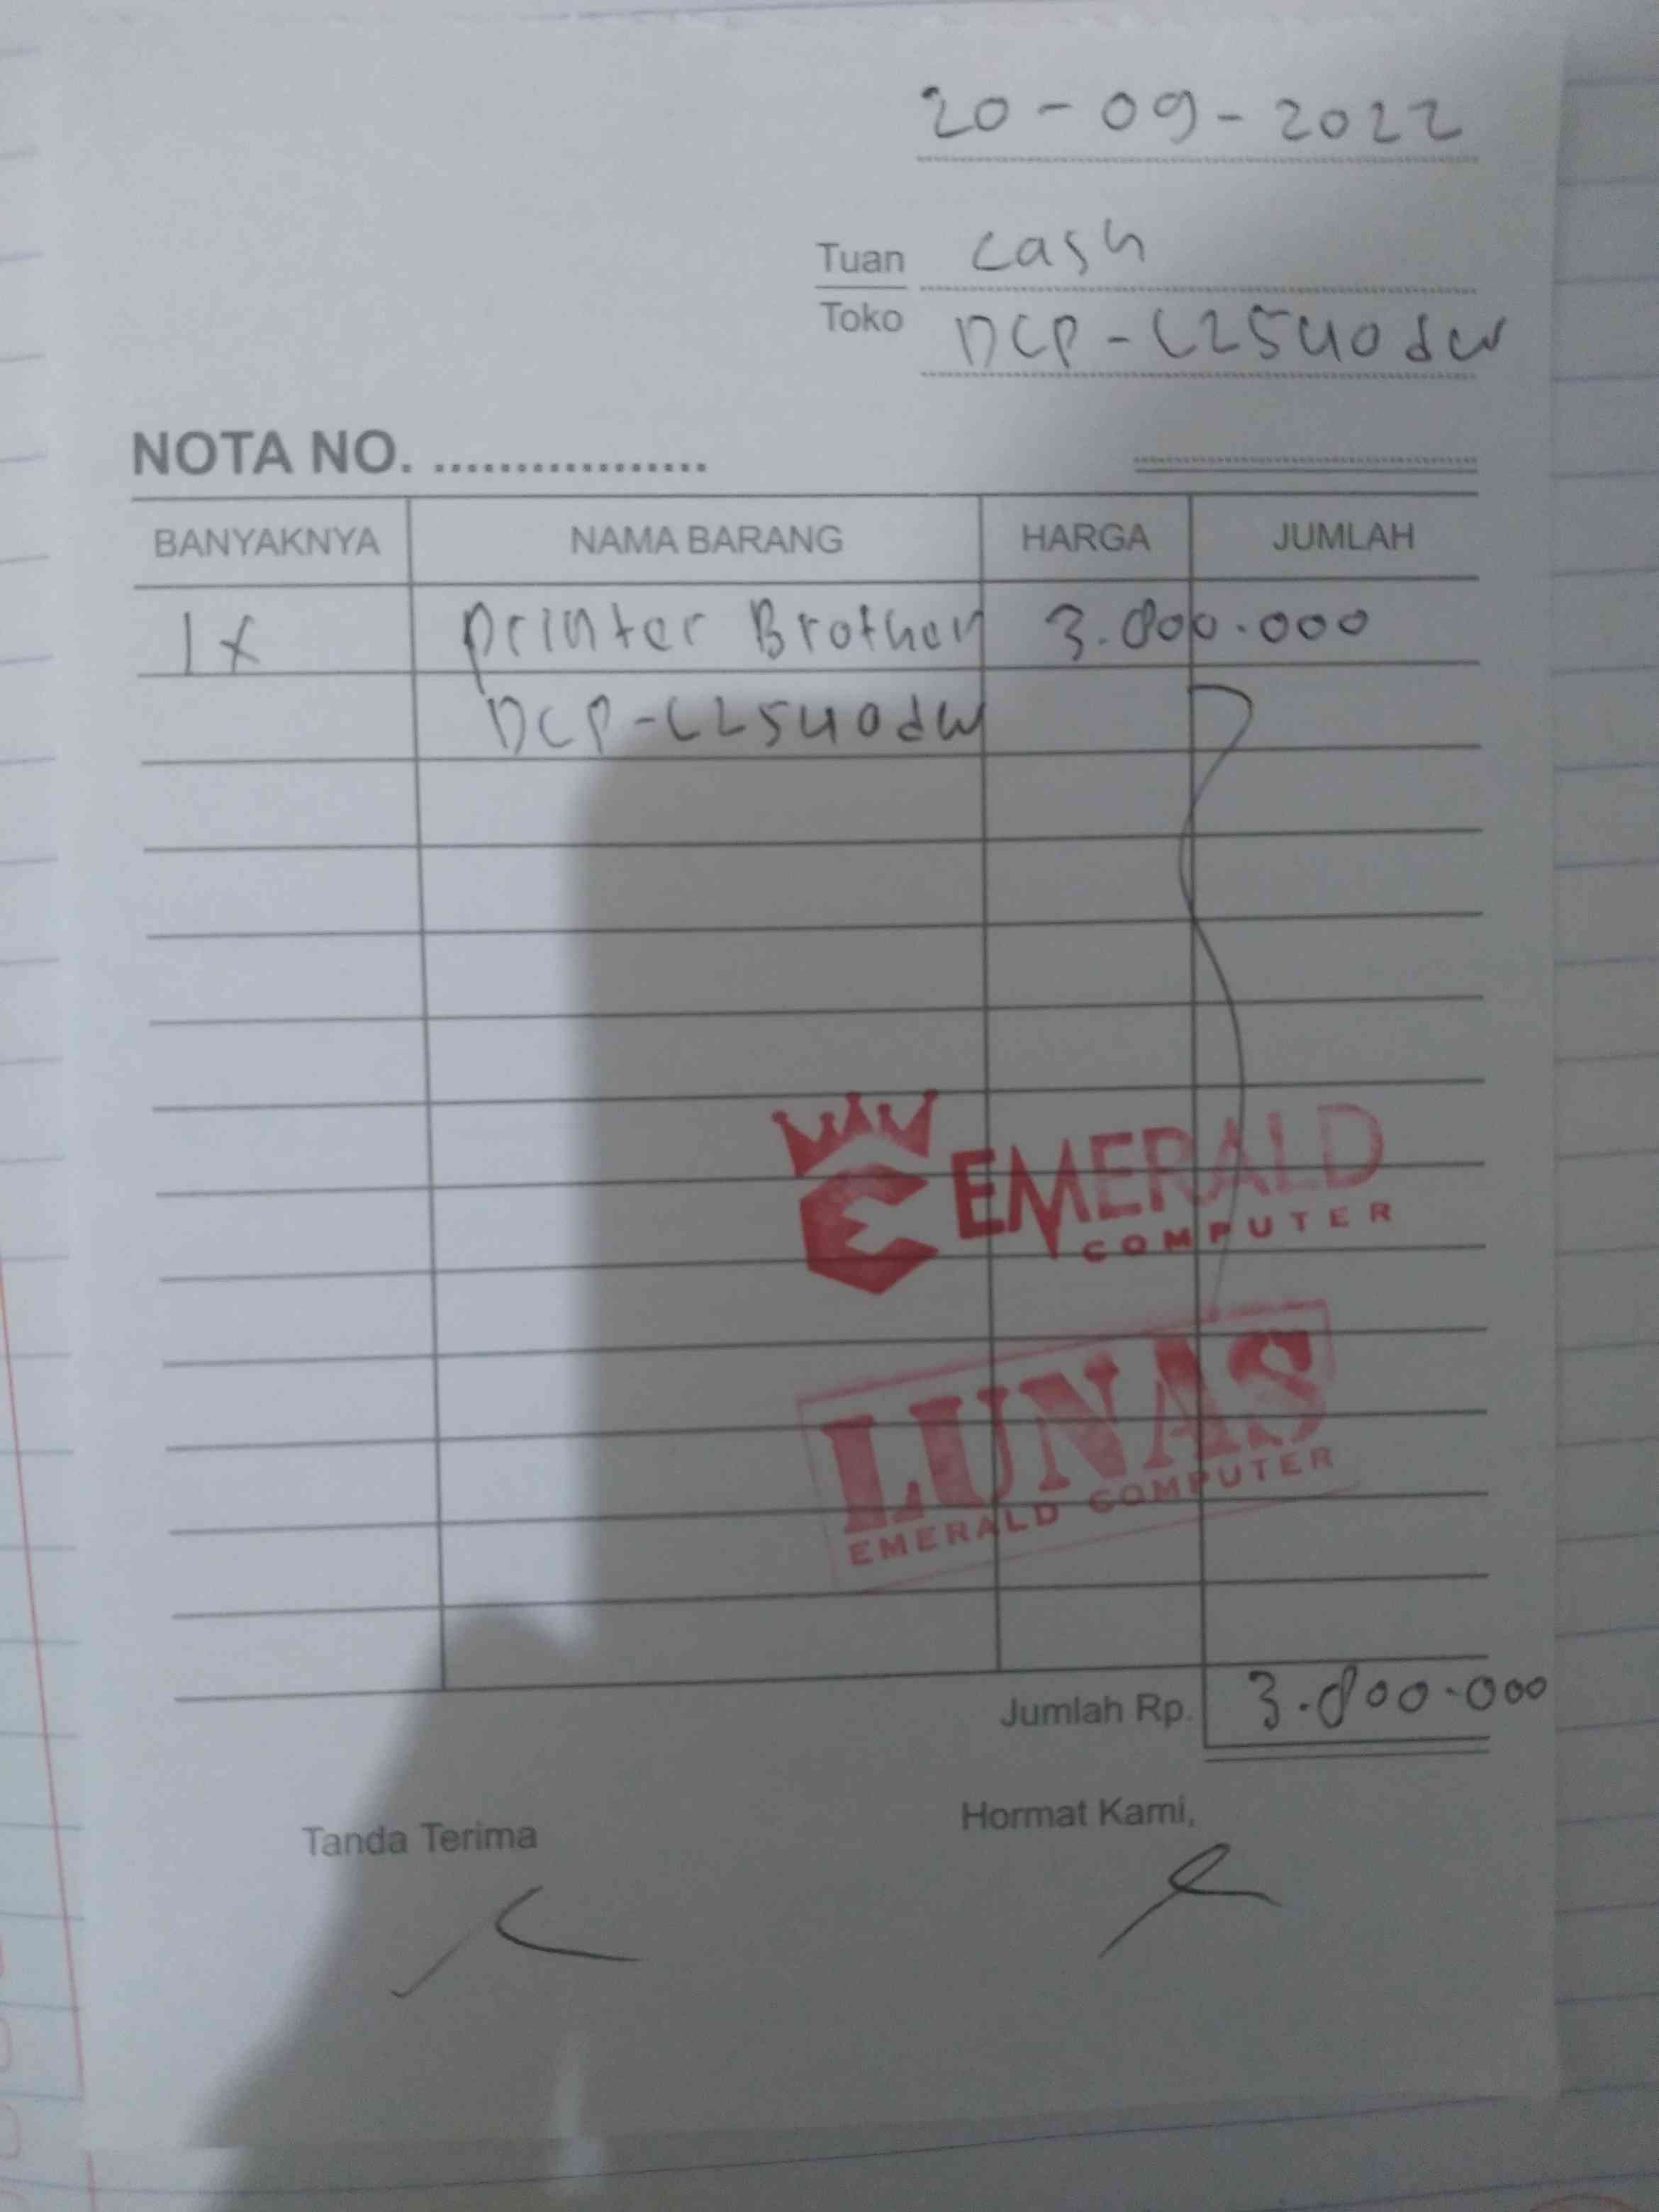 20-09-2022
Tuan cash
Toko DCP-L2540dw
NOTA NO. .................
BANYAKNYA NAMA BARANG HARGA JUMLAH
1x printer Brother 3.800.000
DCP-L2540dw
EMERALD
COMPUTER
LUNAS
EMERALD COMPUTER
Jumlah Rp. 3.800.000
Tanda Terima Hormat Kami,